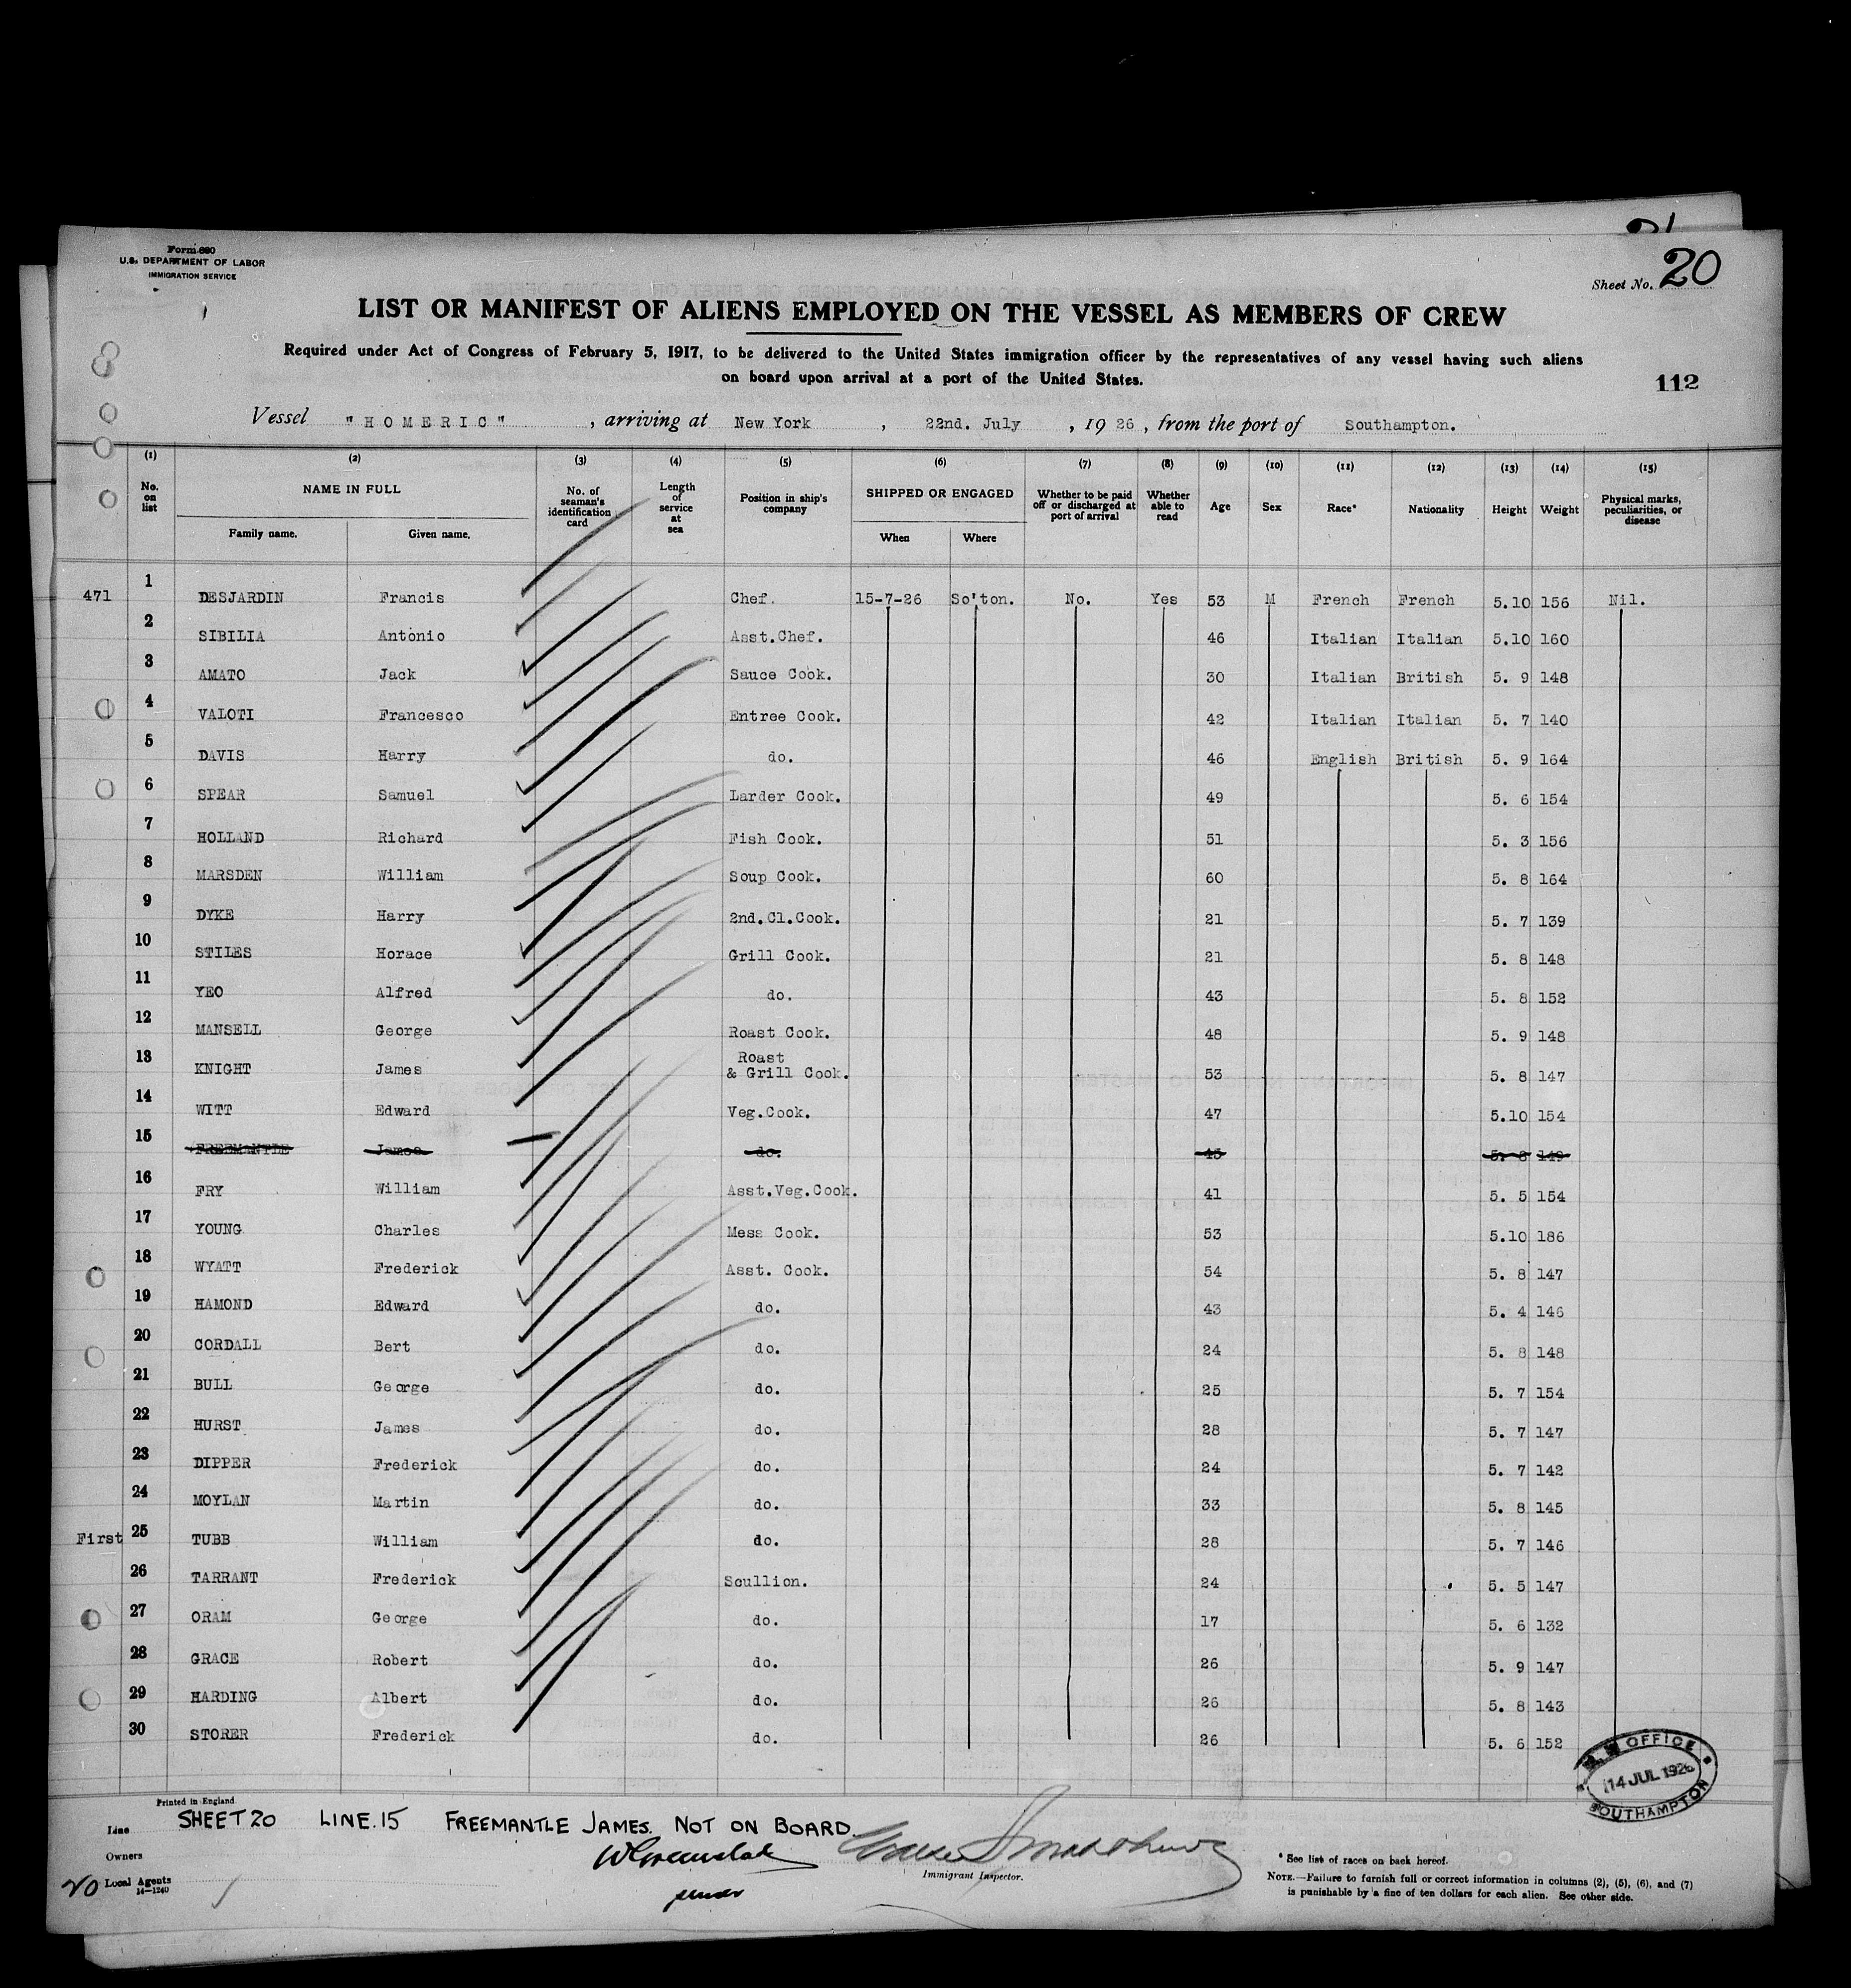 Form 680
U.S. DEPARTMENT OF LABOR
IMMIGRATION SERVICE
Sheet No. 20
LIST OR MANIFEST OF ALIENS EMPLOYED ON THE VESSEL AS MEMBERS OF CREW
Required under Act of Congress of February 5, 1917, to be delivered to the United States immigration officer by the representatives of any vessel having such aliens
on board upon arrival at a port of the United States.
112
Vessel "HOMERIC", arriving at New York, 22nd. July, 1926, from the port of Southampton.
(1) (2) (3) (4) (5) (6) (7) (8) (9) (10) (11) (12) (13) (14) (15)
No. on list NAME IN FULL No. of seaman's identification card Length of service at sea Position in ship's company SHIPPED OR ENGAGED Whether to be paid off or discharged at port of arrival Whether able to read Age Sex Race* Nationality Height Weight Physical marks, peculiarities, or disease
Family name. Given name. When Where
471 1 DESJARDIN Francis Chef. 15-7-26 So'ton. No. Yes 53 M French French 5.10 156 Nil.
2 SIBILIA Antonio Asst.Chef. 46 Italian Italian 5.10 160
3 AMATO Jack Sauce Cook. 30 Italian British 5. 9 148
4 VALOTI Francesco Entree Cook. 42 Italian Italian 5. 7 140
5 DAVIS Harry do. 46 English British 5. 9 164
6 SPEAR Samuel Larder Cook. 49 5. 6 154
7 HOLLAND Richard Fish Cook. 51 5. 3 156
8 MARSDEN William Soup Cook. 60 5. 8 164
9 DYKE Harry 2nd.Cl.Cook. 21 5. 7 139
10 STILES Horace Grill Cook. 21 5. 8 148
11 YEO Alfred do. 43 5. 8 152
12 MANSELL George Roast Cook. 48 5. 9 148
13 KNIGHT James Roast & Grill Cook. 53 5. 8 147
14 WITT Edward Veg.Cook. 47 5.10 154
15 FREEMANTLE James do. 45 5. 8 149
16 FRY William Asst.Veg.Cook. 41 5. 5 154
17 YOUNG Charles Mess Cook. 53 5.10 186
18 WYATT Frederick Asst. Cook. 54 5. 8 147
19 HAMOND Edward do. 43 5. 4 146
20 CORDALL Bert do. 24 5. 8 148
21 BULL George do. 25 5. 7 154
22 HURST James do. 28 5. 7 147
23 DIPPER Frederick do. 24 5. 7 142
24 MOYLAN Martin do. 33 5. 8 145
First 25 TUBB William do. 28 5. 7 146
26 TARRANT Frederick Scullion. 24 5. 5 147
27 ORAM George do. 17 5. 6 132
28 GRACE Robert do. 26 5. 9 147
29 HARDING Albert do. 26 5. 8 143
30 STORER Frederick do. 26 5. 6 152
OFFICE
14 JUL 1926
SOUTHAMPTON
Printed in England
Line SHEET 20 LINE.15 FREEMANTLE JAMES. NOT ON BOARD.
Owners
20 Local Agents
14-1240
Immigrant Inspector.
* See list of races on back hereof.
NOTE.—Failure to furnish full or correct information in columns (2), (5), (6), and (7)
is punishable by a fine of ten dollars for each alien. See other side.